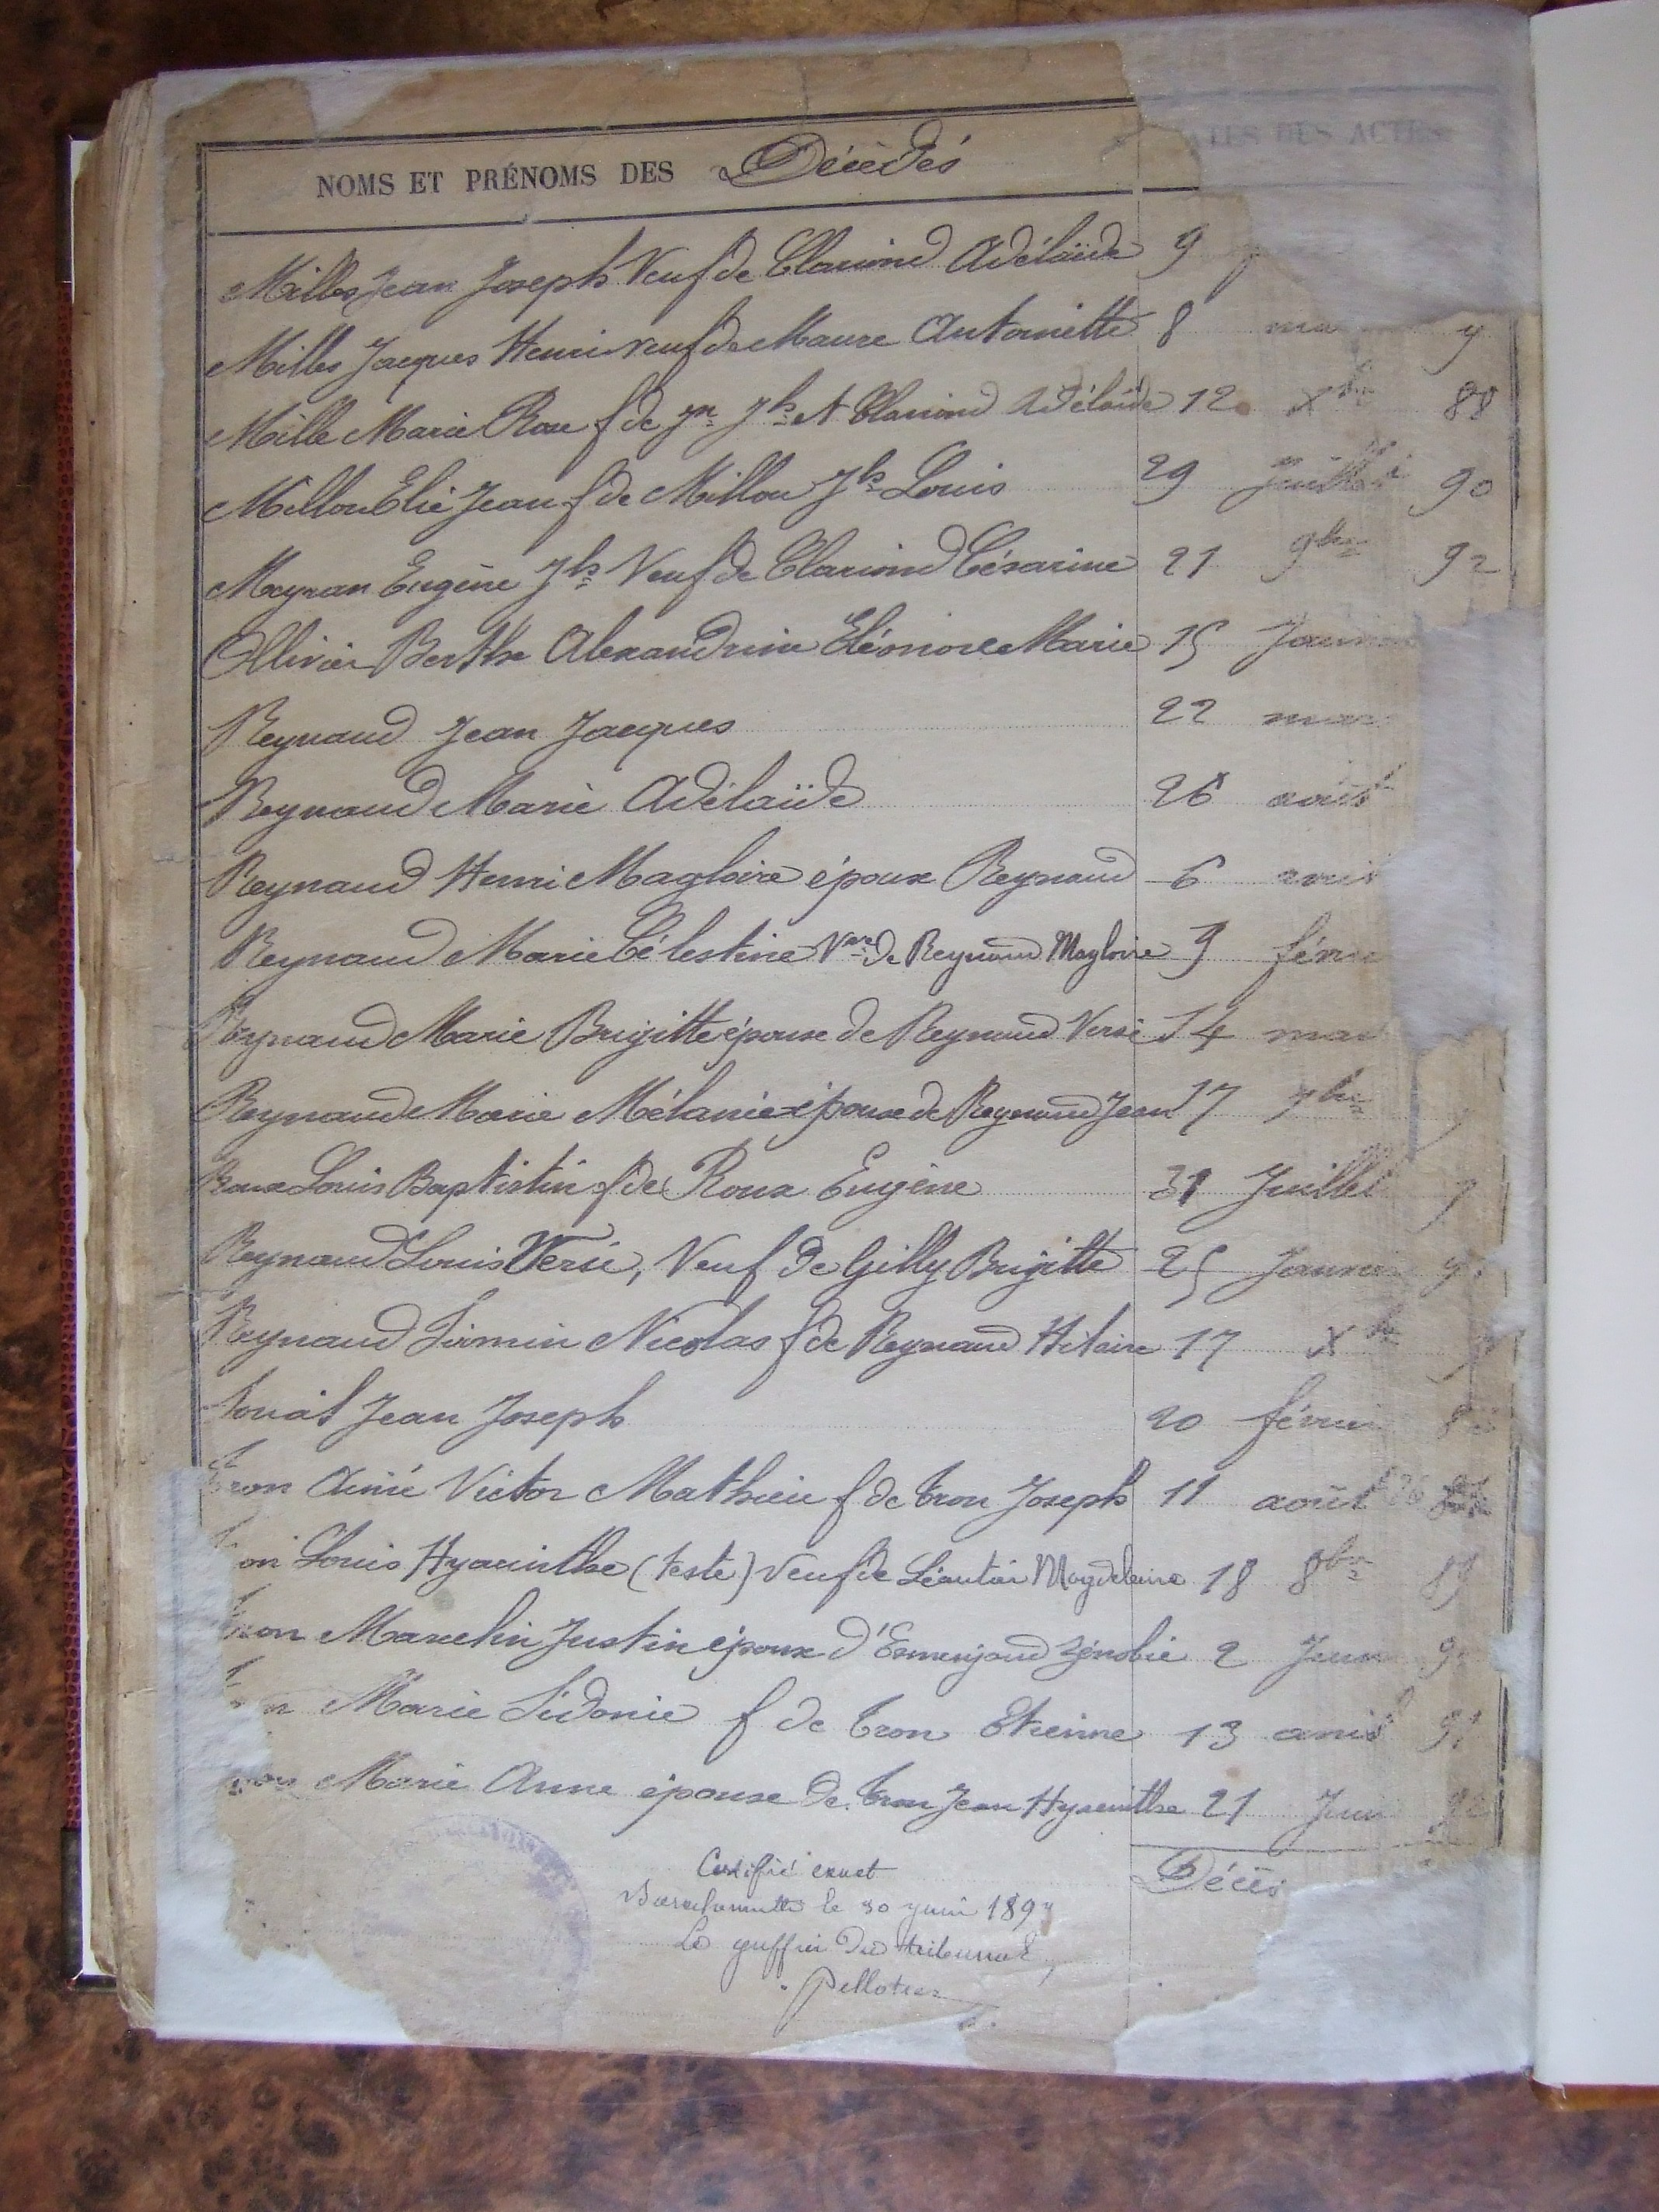 NOMS ET PRÉNOMS DES Décédés DATES DES ACTES
Milles Jean Joseph Veuf de Clariond Adélaïde 9
Milles Jacques Henri veuf de Maure Antoinette 8 ma 9
Mille Marie Rose f de Jn Jh et Clariond Adélaïde 12 Xbre 88
Millou Elie Jean f de Millou Jh Louis 29 Juillet 90
Meyran Eugène Jh Veuf de Clariond Césarine 21 9bre 92
Ollivier Berthe Alexandrine Eléonore Marie 15 Janv
Reynaud Jean Jacques 22 mar
Reynaud Marie Adélaïde 26 août
Reynaud Henri Magloire époux Reynaud 6 avril
Reynaud Marie Célestine Vve de Reynaud Magloire 9 févri
Reynaud Marie Brigitte épouse de Reynaud Versi 14 mar
Reynaud Marie Mélanie épouse de Reynaud Jean 17 7bre
Roux Louis Baptistin f de Roux Eugène 31 Juillet 9
Reynaud Louis Versi, Veuf de Gilly Brigitte 25 Janvi 9
Reynaud Firmin Nicolas f de Reynaud Hilaire 17 Xbre
Jean Joseph 20 févri 8
ron Aimé Victor Mathieu f de Tron Joseph 11 août
on Louis Hyacinthe (teste) veuf de Léautier Magdeleine 18 8bre 89
ron Marcelin Justin époux d'Esmenjaud Zénobie 2 Juin 9
n Marie Sidonie f de Tron Etienne 13 avril 91
Marie Anne épouse de Tron Jean Hyacinthe 21 Juin 92
Certifié exact Décès
Barcelonnette le 30 juin 189
Le greffier du tribunal,
Pellotier